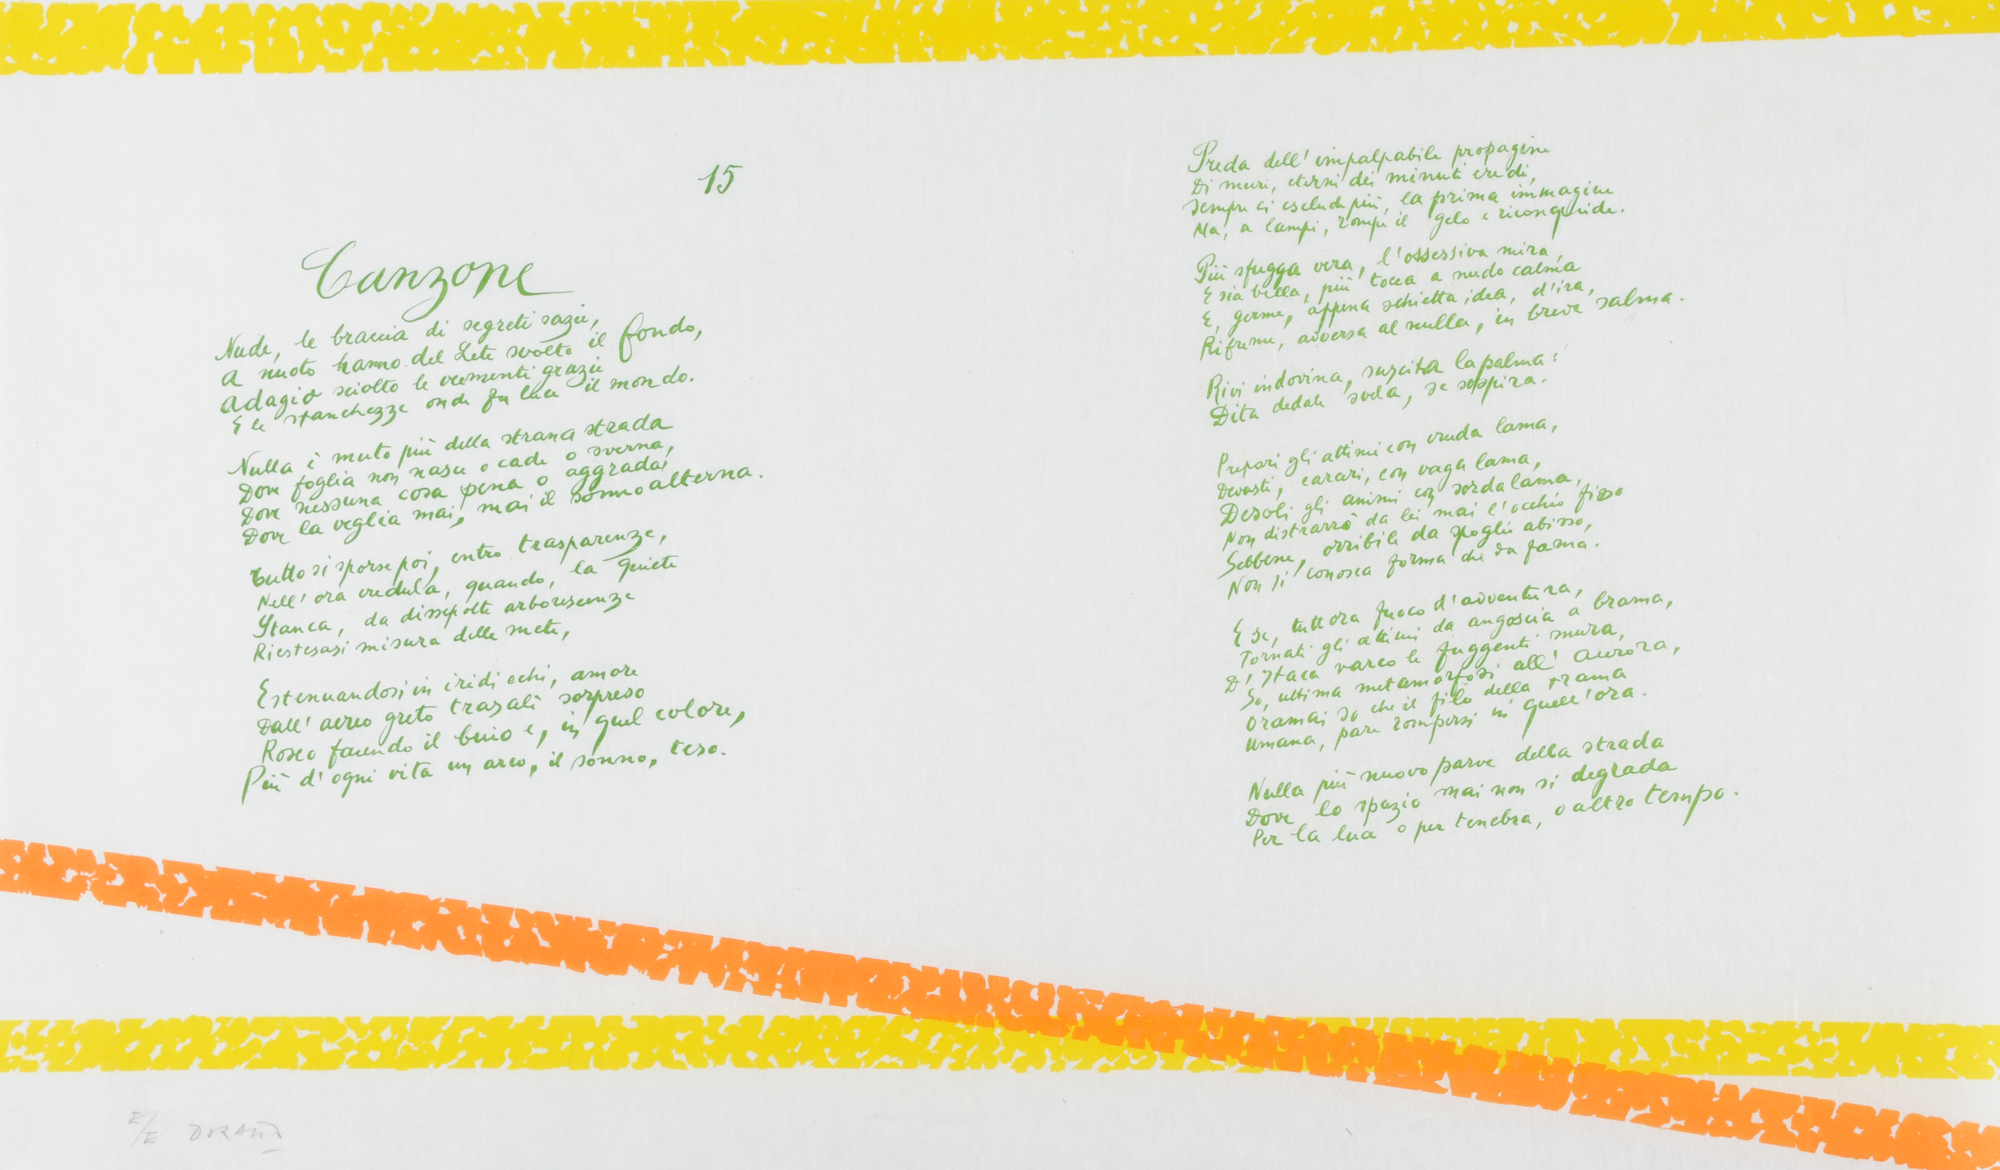 15
Canzone
Nude, le braccia di segreti sazie,
A nuoto hanno del Lete svolto il fondo,
Adagio sciolto le veementi grazie
E le stanchezze onde fu luce il mondo.
Nulla è muto più della strana strada
Dove foglia non nasce o cade o sverna,
Dove nessuna cosa pena o aggrada,
Dove la veglia mai, mai il sonno alterna.
Tutto si sporse poi, entro trasparenze,
Nell'ora credula, quando, la quiete
Stanca, da dissepolte arborescenze
Riestesasi misura delle mete,
Estenuandosi in iridi echi, amore
Dall'aereo greto trasalì sorpreso
Roseo facendo il buio e, in quel colore,
Più d'ogni vita un arco, il sonno, teso.
Preda dell'impalpabile propagine
Di muri, eterni dei minuti eredi,
Sempre ci esclude più, la prima immagine
Ma, a lampi, rompe il gelo e riconquide.
Più sfugga vera, l'ossessiva mira,
E sia bella, più tocca a nudo calma
E, germe, appena schietta idea, d'ira,
Rifreme, avversa al nulla, in breve salma.
Rivi indovina, suscita la palma:
Dita dedale svela, se sospira.
Prepari gli attimi con cruda lama,
Devasti, carceri, con vaga lama,
Desoli gli animi con sorda lama,
Non distrarrò da lei mai l'occhio fisso
Sebbene, orribile da spoglio abisso,
Non si conosca forma che da fama.
E se, tuttora fuoco d'avventura,
Tornati gli attimi da angoscia a brama,
D'Itaca varco le fuggenti mura,
So, ultima metamorfosi all'aurora,
Oramai so che il filo della trama
Umana, pare rompersi in quell'ora.
Nulla più nuovo parve della strada
Dove lo spazio mai non si degrada
Per la luce o per tenebra, o altro tempo.
E/E DORAZIO